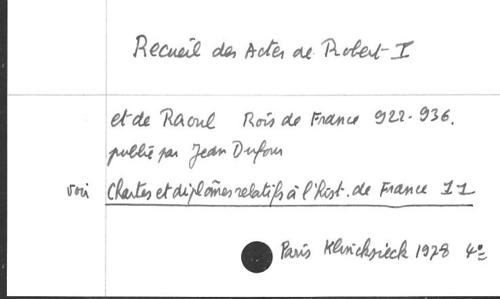 Recueil des Actes de Robert I
et de Raoul Rois de France 922-936.
publié par Jean Dufour
voir Chartes et diplômes relatifs à l'Hist. de France 11
Paris Klincksieck 1978 4°